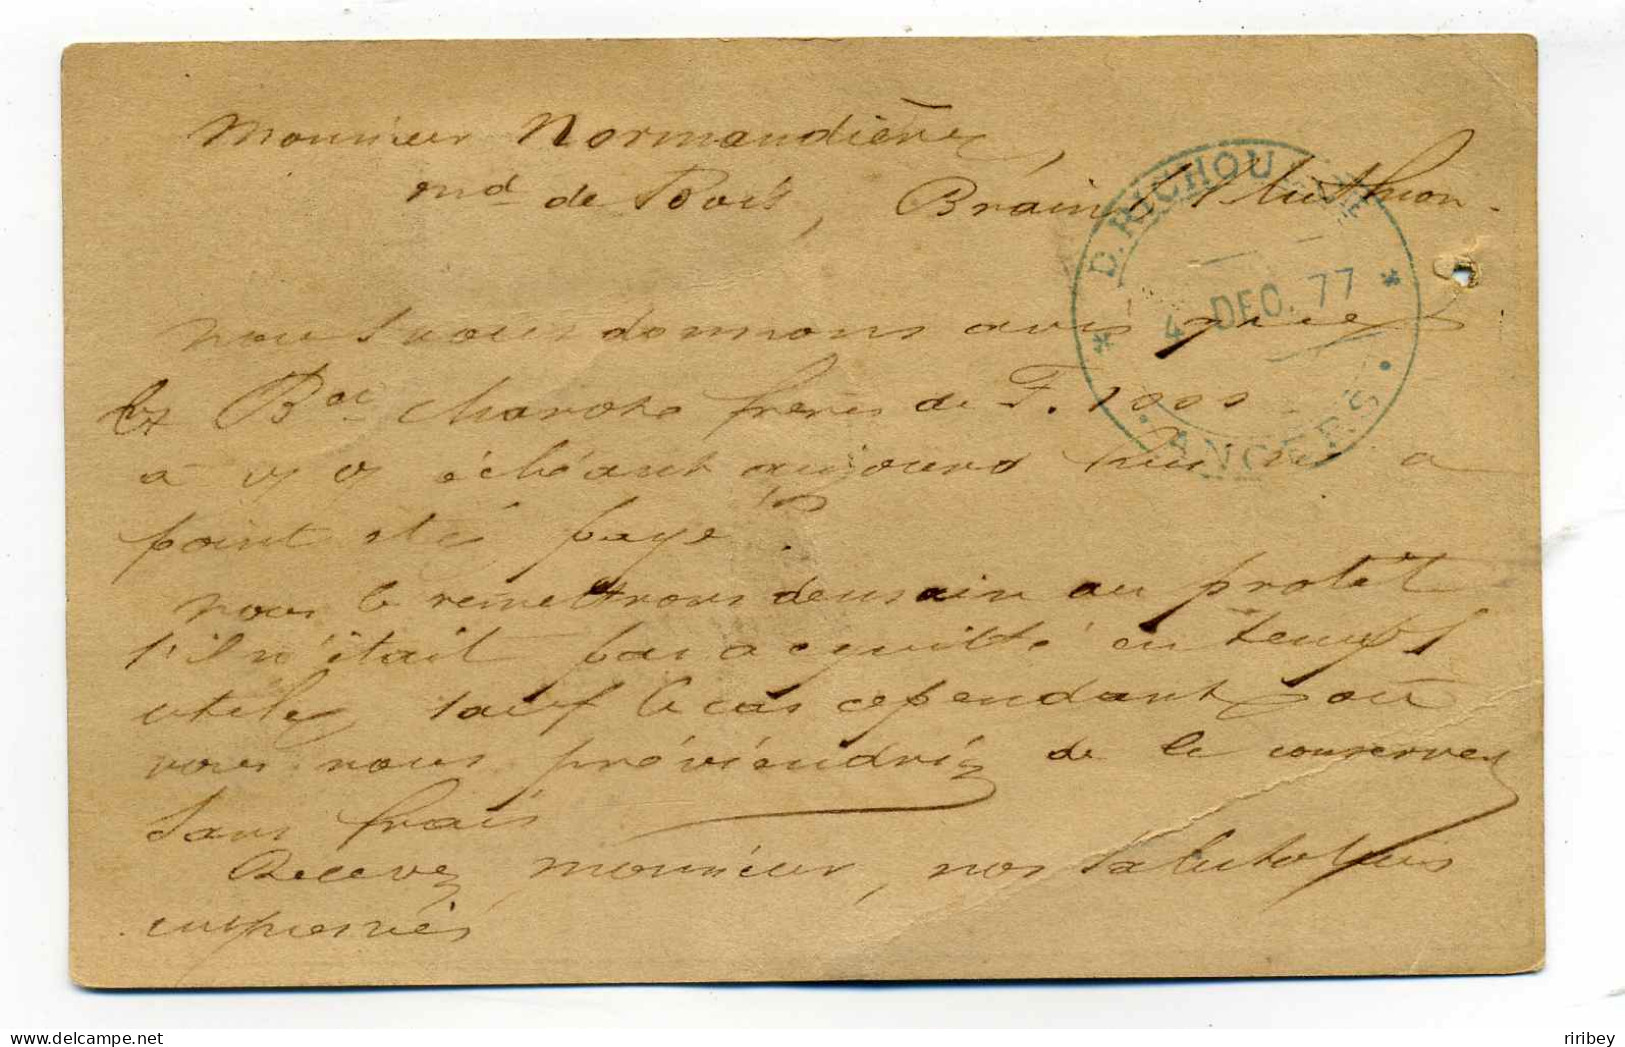 Monsieur Normandière,
md de Bois, Brain s/ l'Authion.
D. RICHOU
4 DEC. 77
ANGERS
nous vous donnons avis que
frères de F. 1000
à échéant aujourd'hui n'a
point été payé.
nous le remettrons demain au protêt
s'il n'était pas acquitté en temps
utile, sauf le cas cependant où
vous nous préviendriez de le conserver
sans frais
Recevez, monsieur, nos salutations
empressées
ririBey